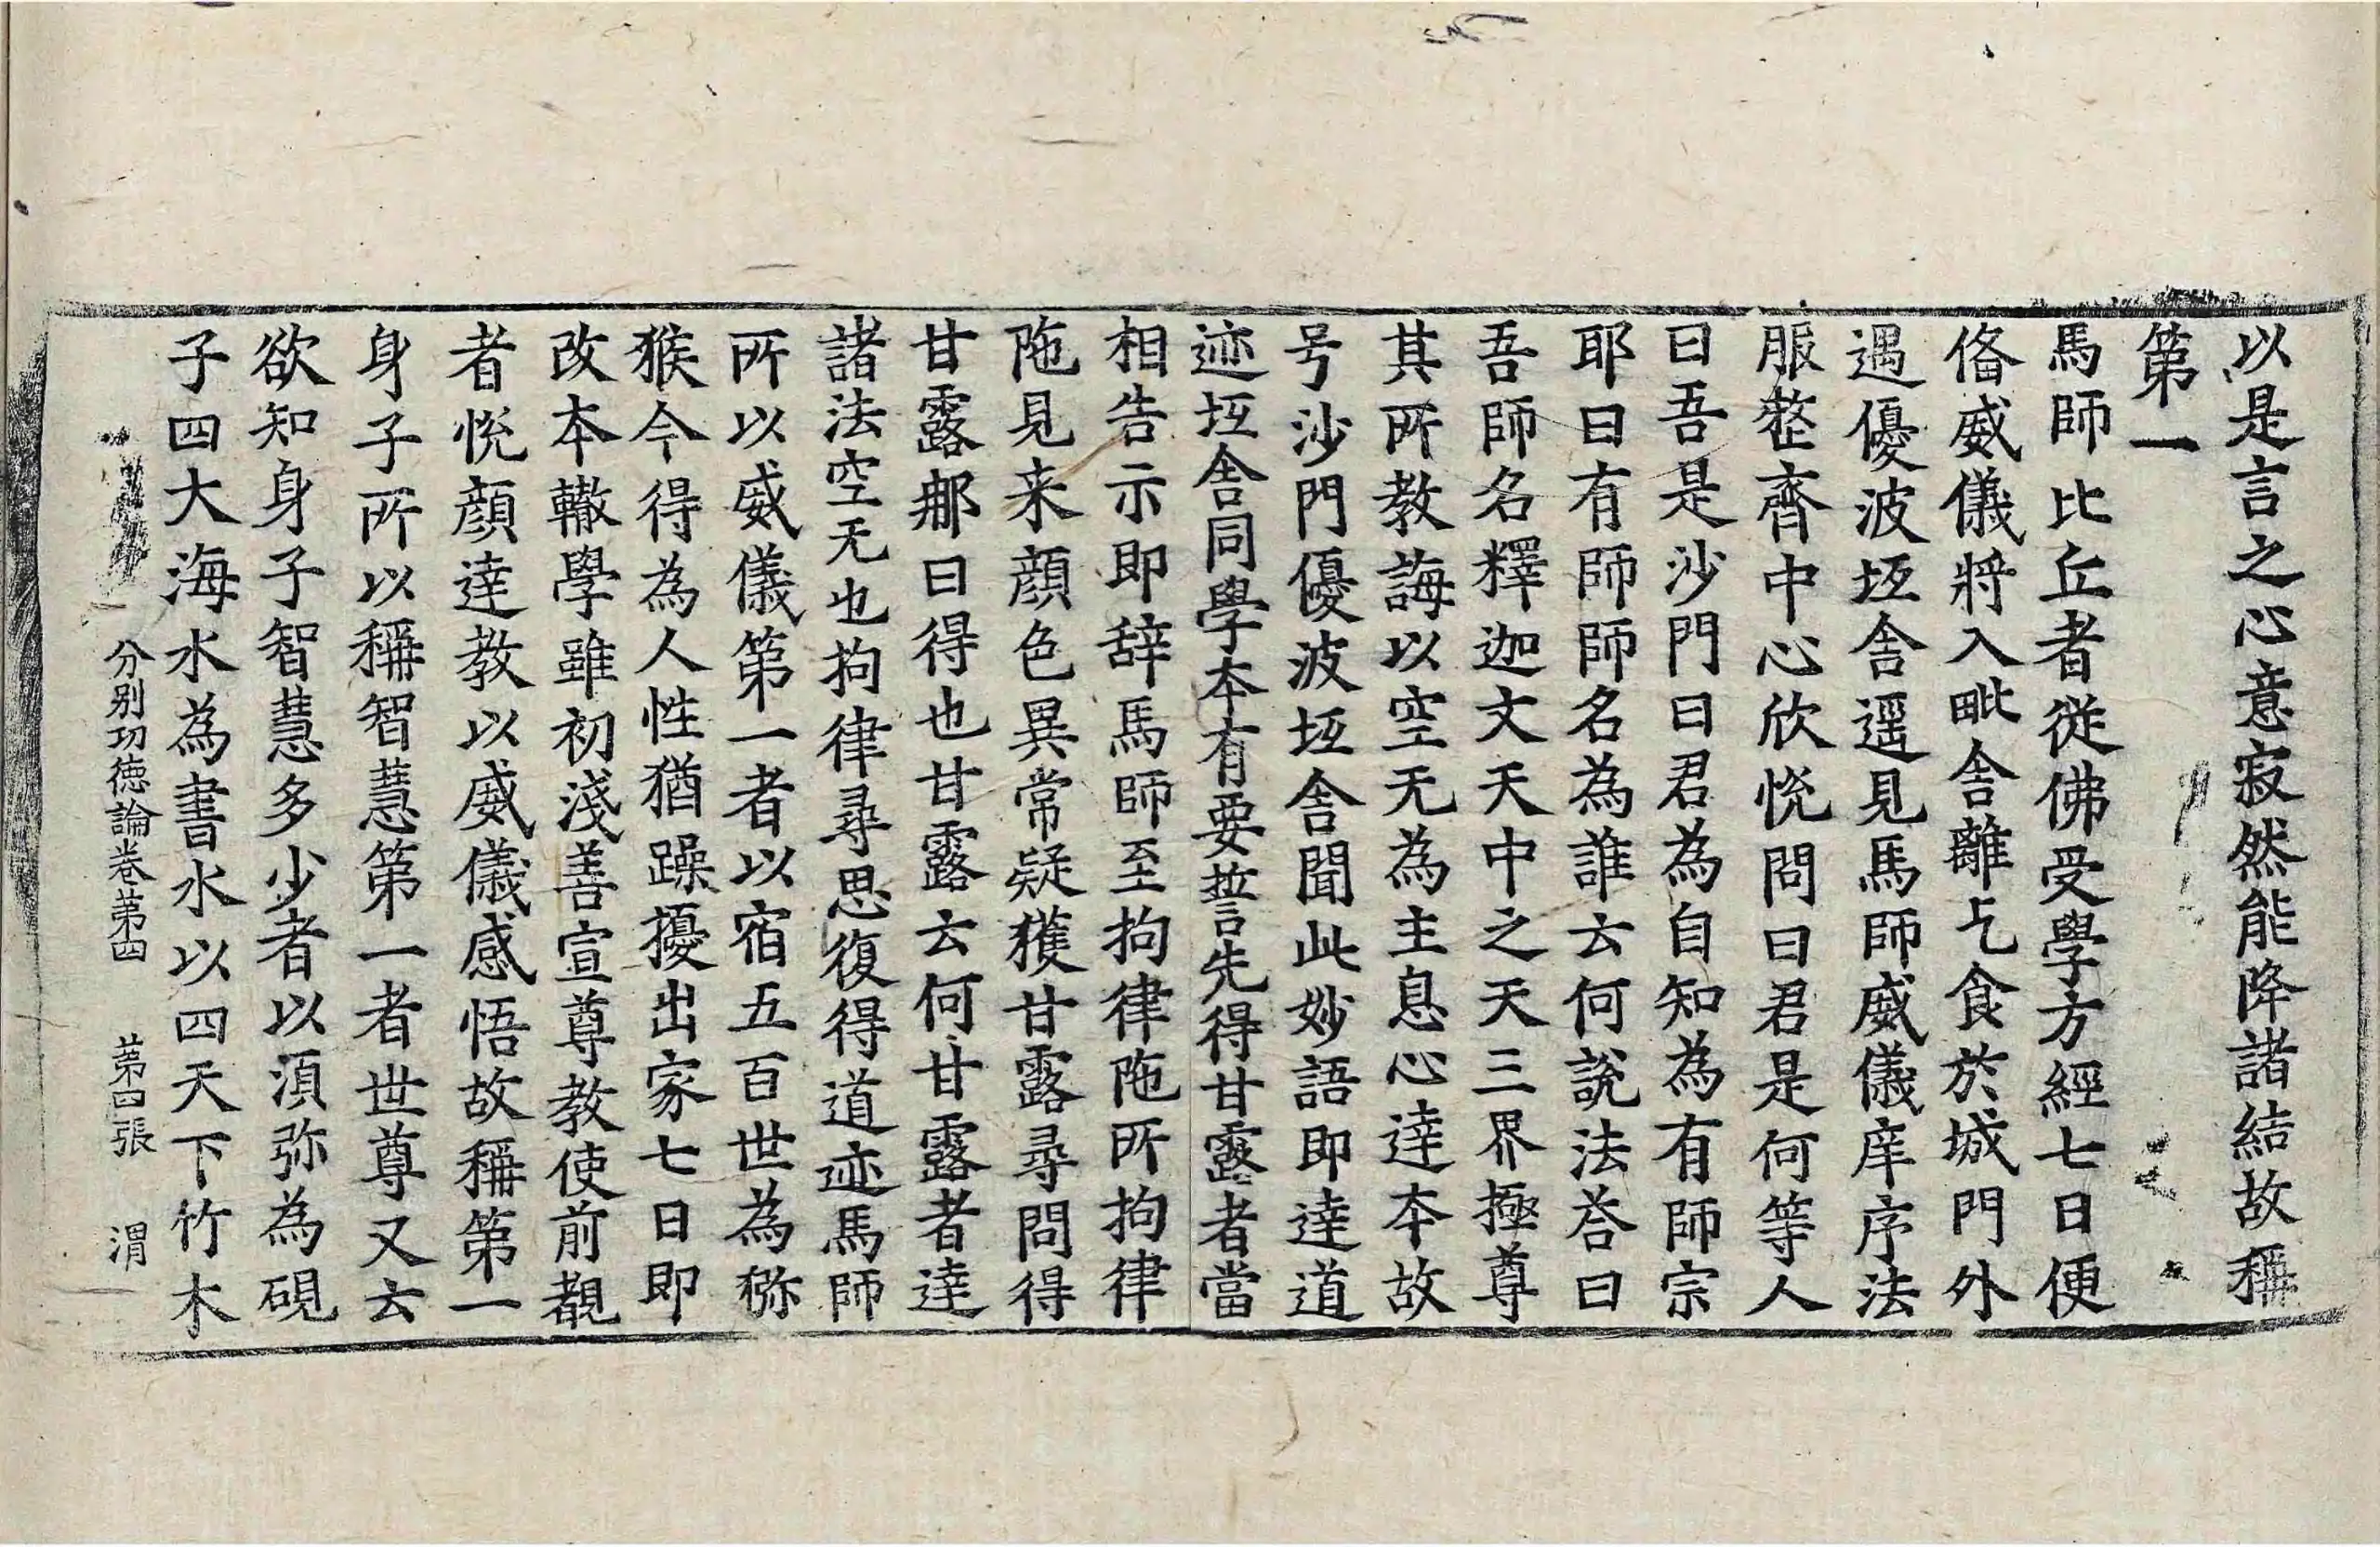 以是言之心意寂然能降諸結故稱
第一
馬師比丘者從佛受學方經七日便
俻威儀將入毗舍離乞食於城門外
遇優波坻舍遥見馬師威儀庠序法
服整齊中心欣悅問曰君是何等人
曰吾是沙門曰君為自知為有師宗
耶曰有師師名為誰云何說法荅曰
吾師名釋迦文天中之天三界極尊
其所教誨以空无為主息心達本故
号沙門優波坻舍聞此妙語即達道
迹坻舍同學本有要誓先得甘露者當
相告示即辞馬師至拘律陁所拘律
陁見来顔色異常疑獲甘露尋問得
甘露耶曰得也甘露云何甘露者達
諸法空无也拘律尋思復得道迹馬師
所以威儀第一者以宿五百世為獼
猴今得為人性猶躁擾出家七日即
改本轍學雖初淺善宣尊教使前覩
者悅顔達教以威儀感悟故稱第一
身子所以稱智慧第一者世尊又云
欲知身子智慧多少者以湏弥為硯
子四大海水為書水以四天下竹木
分別功德論卷第四 第四張 渭